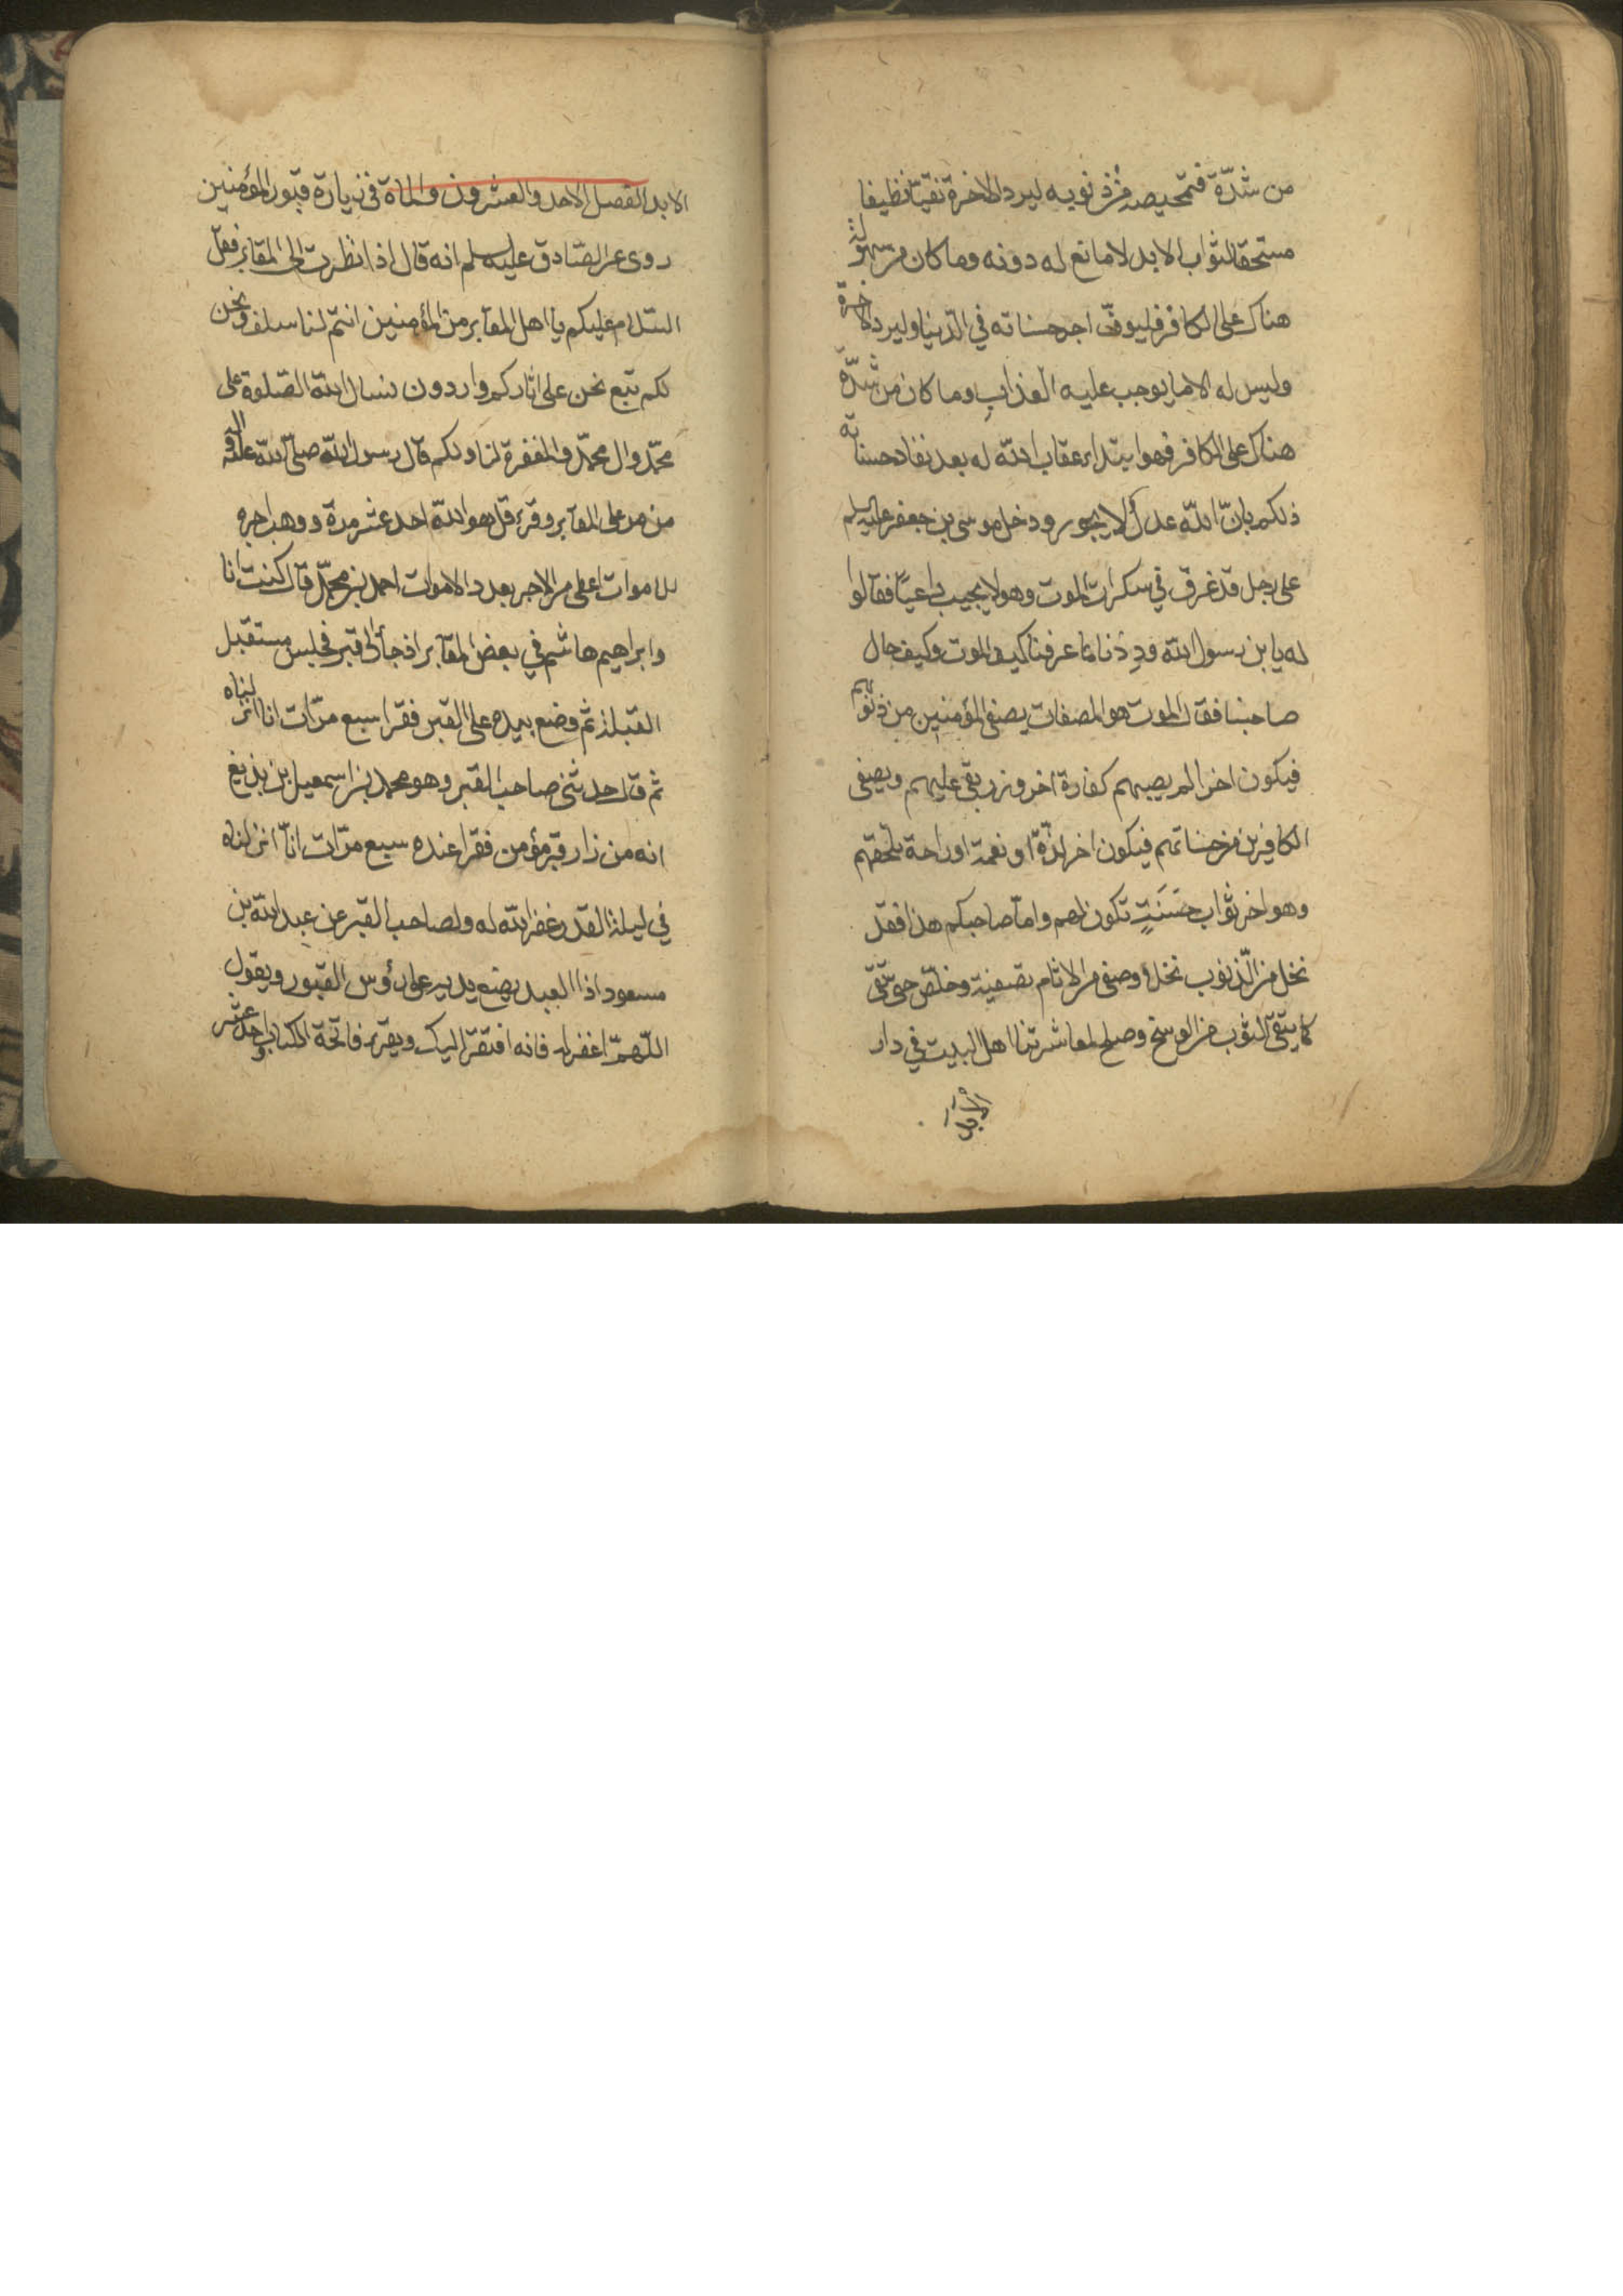 من شدّة فتمحيصه من ذنوبه ليرد الاخرة نقيّا نظيفا
مستحقا لثواب الابد لا مانع له دونه وما كان من سهولة
هناك على الكافر فليوفّى اجر حسناته في الدّنيا وليرد الاخرة
وليس له الا ما يوجب عليه العذاب وما كان من شدّة
هناك على الكافر فهو ابتداء عقاب الله له بعد نفاد حسناته
ذلكم بانّ الله عدل لا يجور ودخل موسى بن جعفر عليه السلم
على رجل قد غرق في سكرات الموت وهو لا يجيب داعيًا فقالوا
له يا بن رسول الله وددنا لما عرفنا كيف الموت وكيف حال
صاحبنا فقال الموت هو المصفات يصفى المؤمنين من ذنوبهم
فيكون اخر الم يصيبهم كفارة اخر وزر بقى عليهم ويصفى
الكافرين من حسناتهم فيكون اخر لذّة او نعمة او راحة تلحقهم
وهو اخر ثواب حسَنَةٍ تكون لهم وامّا صاحبكم هذا فقد
نخل من الذّنوب نخلا وصفى من الاثام تصفية وخلّص حتى نقى
كما ينقى الثوب من الوسخ وصلح لمعاشرتنا اهل البيت في دار
الابد
الابد الفصل الاحد والعشرون والماة في زيارة قبور المؤمنين
روى عن الصّادق عليه السلم انه قال اذا نظرت الى المقابر فقل
السّلام عليكم يا اهل المقابر من المؤمنين انتم لنا سلف ونحن
لكم تبع نحن على اثاركم واردون نسال الله الصّلوة على
محمّد وال محمّد والمغفرة لنا ولكم قال رسول الله صلّى الله عليه واله
من مر على المقابر وقرء قل هو الله احد عشر مرة ووهب اجره
للاموات اعطى من الاجر بعدد الاموات احمد بن محمّد قال كنت انا
وابراهيم هاشم في بعض المقابر اذ جاء الى قبر فجلس مستقبل
القبلة ثم وضع بيده على القبر فقرا سبع مرّات انا انزلناه
ثم قال حدثنى صاحب القبر وهو محمد بن اسمعيل بن بذيغ
انه من زار قبر مؤمن فقرا عنده سبع مرّات انّا انزلناه
في ليلة القدر غفر الله له ولصاحب القبر عن عبد الله بن
مسعود اذا العبد يضع يديه على رؤس القبور ويقول
اللّهمّ اغفر له فانه افتقر اليك ويقرء فاتحة الكتاب واحد عشر